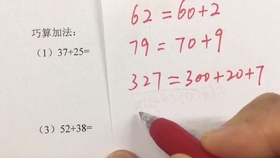 巧算加法:
(1) 37+25=
(3) 52+38=
62 = 60+2
79 = 70+9
327 = 300+20+7